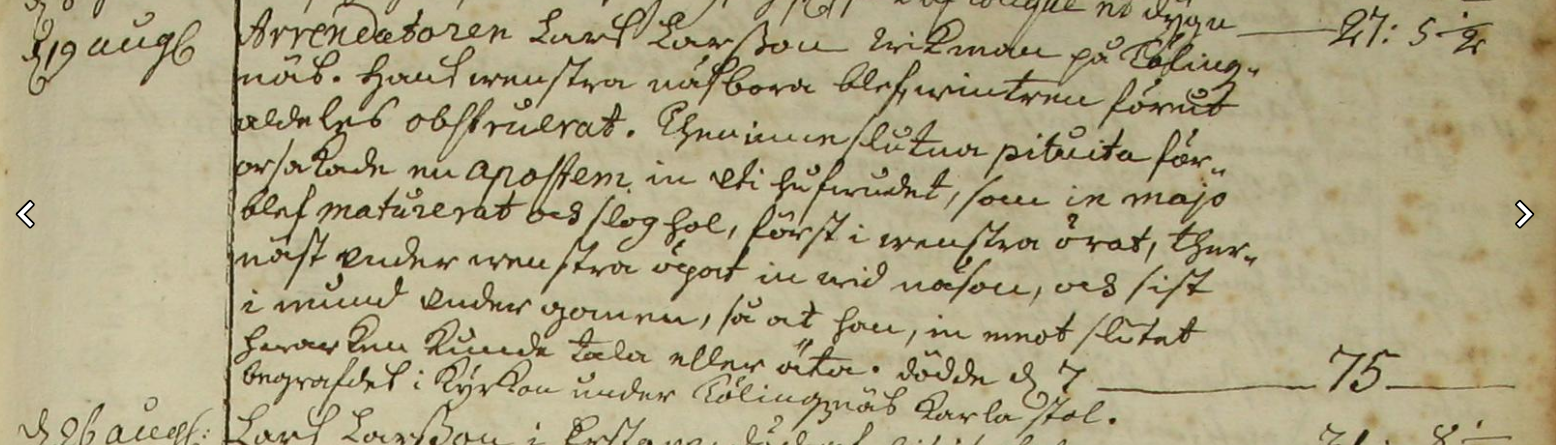 et dygn — 27: 5 ½
d 19 aug. Arrendatoren Lars Larsson Wikman på Köling-
näs. Hans wenstra näsbora blef, wintren förut
aldeles obstruerat. Then inneslutna pituita för-
orsakade en apostem in uti hufwudet, som in majo
blef maturerat och slog hol, först i wenstra örat, ther-
näst under wenstra ögat in wid näson, och sist
i mund under gomen, så at han, in emot slutet
hwarken kunde tala eller äta. dödde d 7 — 75 —
begrafdes i Kyrkon under Kölingznäs Karla stol.
d 26 aug: Lars Larsson i